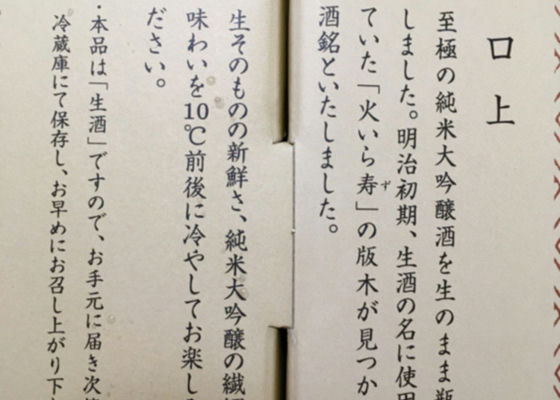 口上
至極の純米大吟醸酒を生のまま瓶
しました。明治初期、生酒の名に使用
ていた「火いら寿ず」の版木が見つか
酒銘といたしました。
生そのものの新鮮さ、純米大吟醸の繊細
味わいを10℃前後に冷やしてお楽し
ださい。
・本品は「生酒」ですので、お手元に届き次
冷蔵庫にて保存し、お早めにお召し上がり下